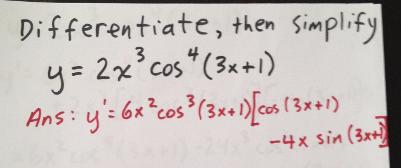 Differentiate, then simplify
y = 2x³ cos⁴(3x+1)
Ans: y' = 6x² cos³(3x+1)[cos(3x+1)
-4x sin(3x+1)]